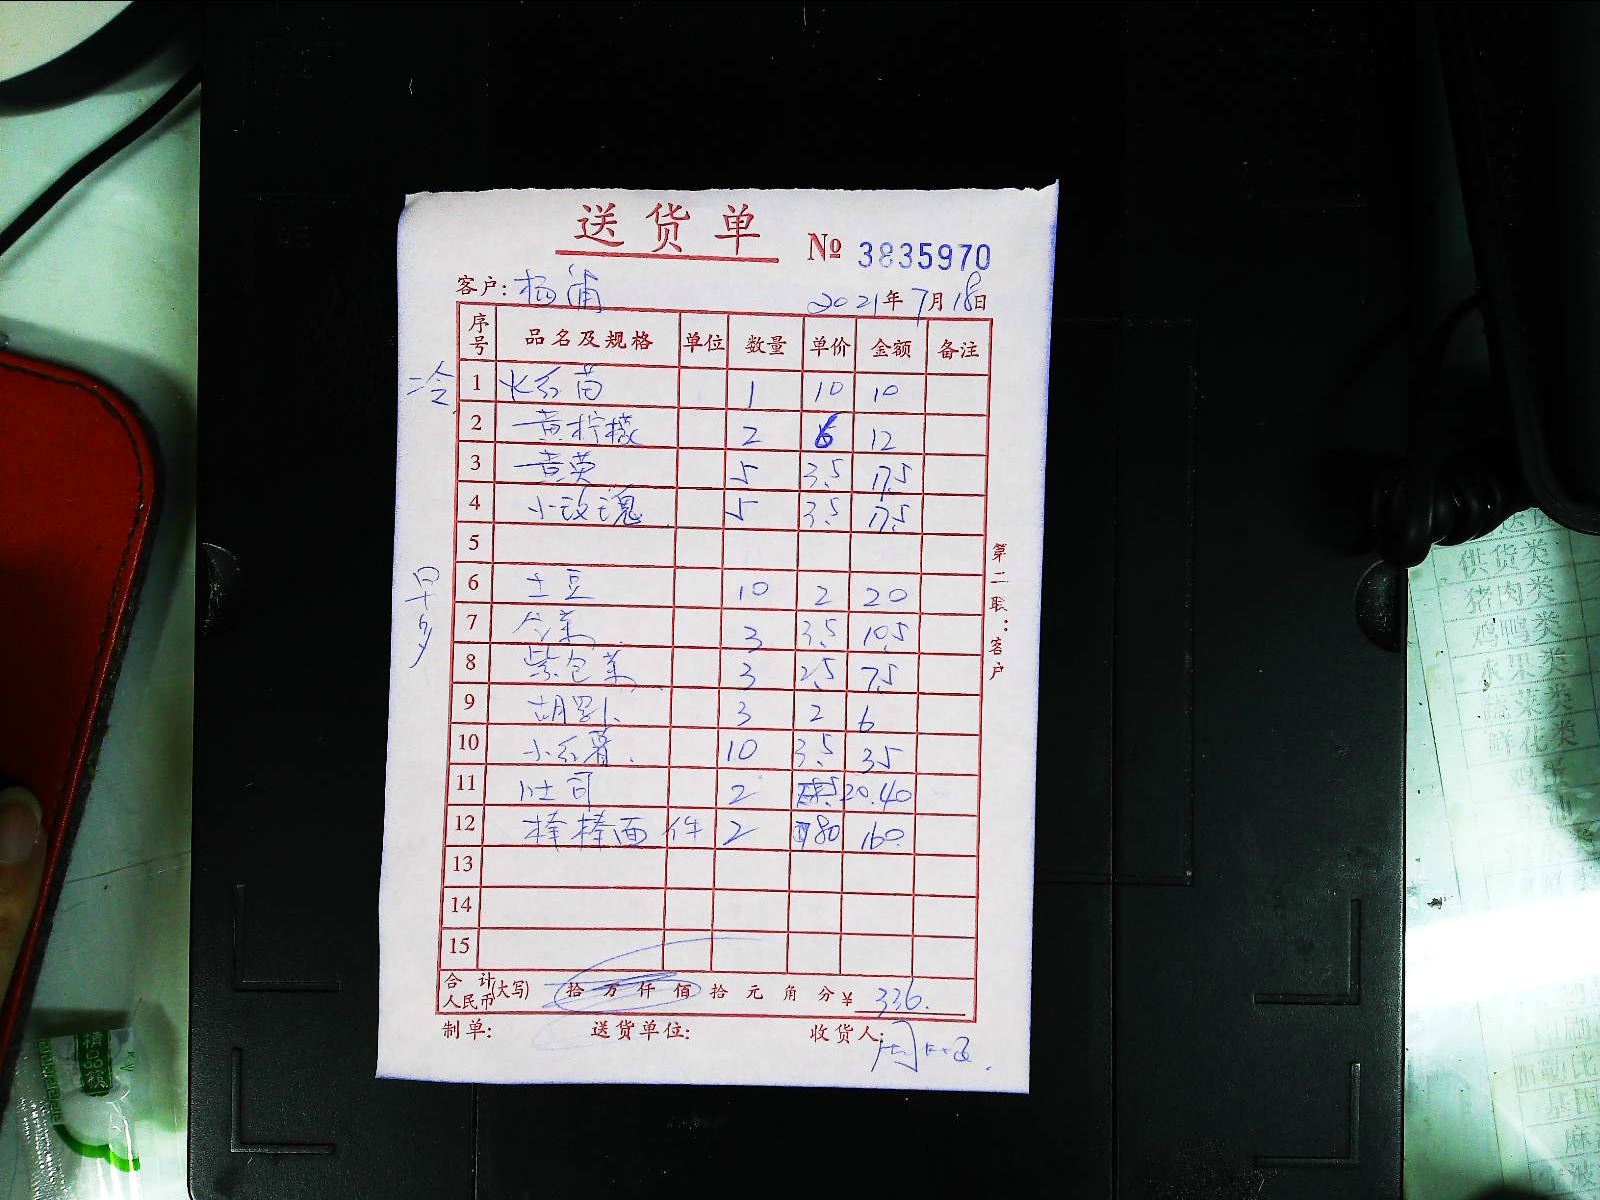 送货单
№ 3835970
客户: 杨浦 2021年7月18日
序号 品名及规格 单位 数量 单价 金额 备注
冷
1 水红苗 1 10 10
2 黄柠檬 2 6 12
3 黄英 5 3.5 17.5
4 小玫瑰 5 3.5 17.5
5
早多
6 土豆 10 2 20
7 生菜 3 3.5 10.5
8 紫包菜 3 2.5 7.5
9 胡罗卜 3 2 6
10 小红薯 10 3.5 35
11 吐司 2 20.40
12 棒棒面 件 2 80 160
13
14
15
合计人民币(大写) 拾万仟佰拾元角分¥ 336.
制单: 送货单位: 收货人:
第二联:客户
供货类
猪肉类
鸡鸭类
水果类
蔬菜类
鲜花类
精品筷